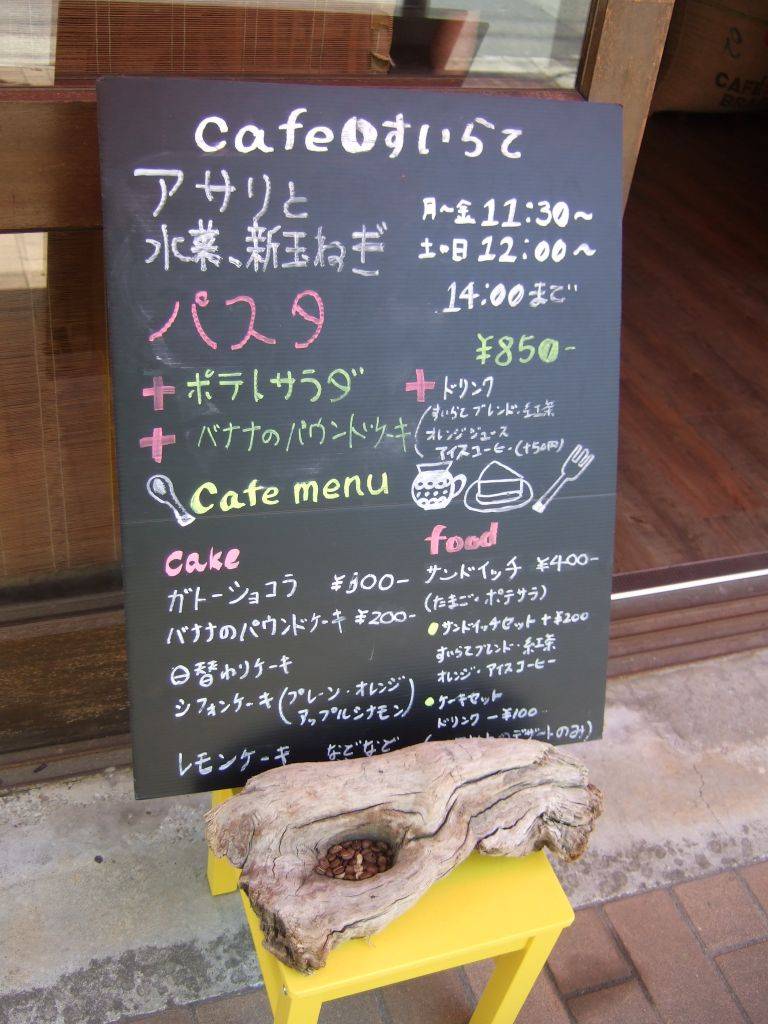 CAFE
BRA
Cafeすいらて
アサリと
水菜、新玉ねぎ
パスタ
月〜金 11:30〜
土・日 12:00〜
14:00まで
¥850-
+ポテトサラダ
+バナナのパウンドケーキ
+ドリンク
(すいらてブレンド・紅茶
オレンジジュース
アイスコーヒー(+50円)
Cafe menu
cake
ガトーショコラ ¥300-
バナナのパウンドケーキ ¥200-
日替わりケーキ
シフォンケーキ(プレーン・オレンジ
アップルシナモン)
レモンケーキ などなど
food
サンドイッチ ¥400-
(たまご・ポテサラ)
・サンドイッチセット +¥200
すいらてブレンド・紅茶
オレンジ・アイスコーヒー
・ケーキセット
ドリンク -¥100
のデザートのみ)